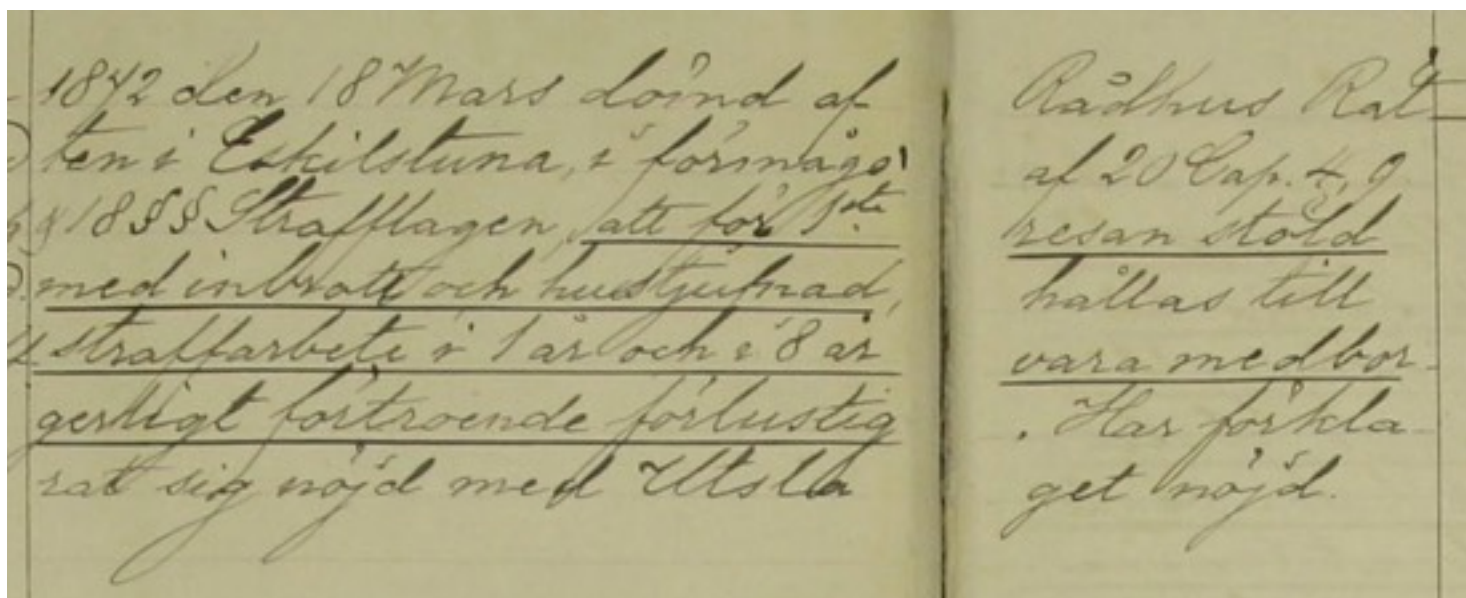 1872 den 18 Mars dömd af Rådhus Rät-
ten i Eskilstuna, i förmågo af 20 Cap. 4, 9
& 18 §§ Strafflagen, att för 1sta resan stöld
med inbrott och hustjufnad, hållas till
straffarbete i 1 år och i 8 år vara medbor-
gerligt förtroende förlustig. Har förkla
rat sig nöjd med Utsla get nöjd.